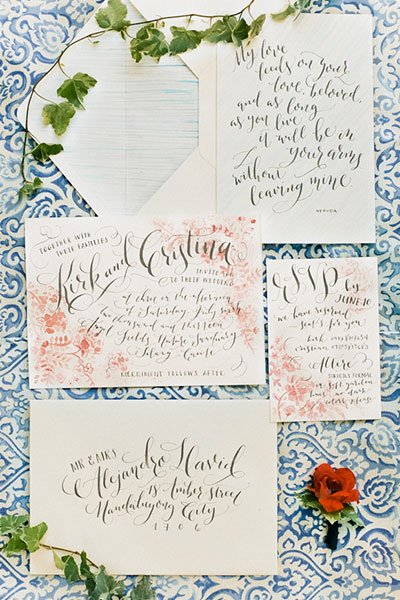 My love
feeds on your
love, beloved,
and as long
as you live
it will be in
your arms
without
leaving mine.
NERUDA
TOGETHER WITH
THEIR FAMILIES
Kirk and Cristina
INVITE YOU
TO THEIR WEDDING
at three in the afternoon
of Saturday, July sixth
two thousand and thirteen
Angel Fields, Nurture Sanctuary
Silang, Cavite
MERRIMENT FOLLOWS AFTER
RSVP by
JUNE 10
we have reserved
seats for you
kirk
cristina
Attire
STRICTLY FORMAL
in soft garden
hues. no dark
colors please
MR & MRS
Alejandro David
18 Amber Street
Mandaluyong City
1706